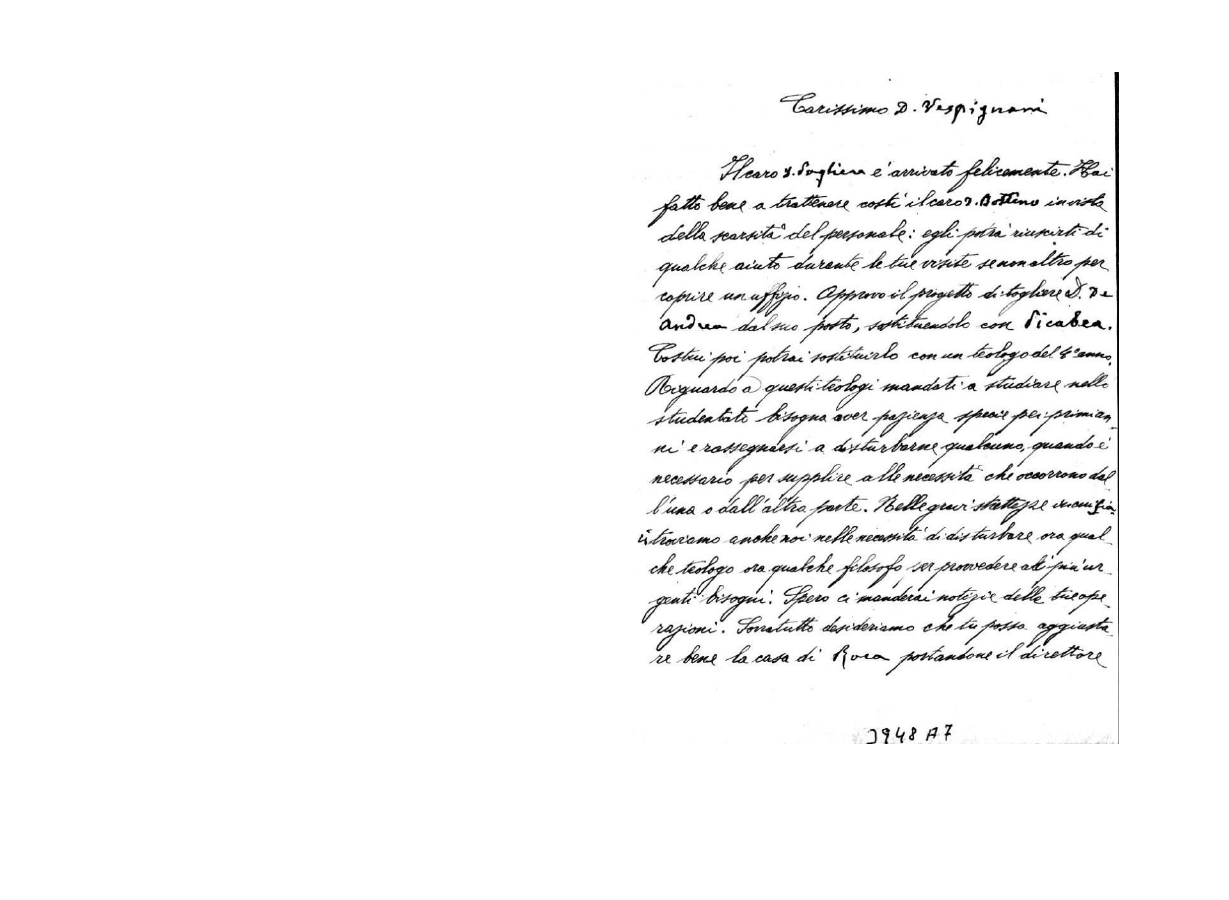 Carissimo D. Vespignani
Il caro D. Pagliere è arrivato felicemente. Hai
fatto bene a trattenere costì il caro D. Bottino in vista
della scarsità del personale: egli potrà riuscirti di
qualche aiuto durante le tue visite se non altro per
coprire un uffizio. Approvo il progetto di togliere D. De
Andrea dal suo posto, sostituendolo con Picabea.
Costui poi potrai sostituirlo con un teologo del 4º anno.
Riguardo a questi teologi mandati a studiare nello
studentati bisogna aver pazienza specie pei primi an-
ni e rassegnarsi a disturbarne qualcuno, quando è
necessario per supplire alle necessità che occorrono dal
l'una o dall'altra parte. Nelle gravi strettezze in cui
ci troviamo anche noi nelle necessità di disturbare ora qual
che teologo ora qualche filosofo per provvedere ai più ur
genti bisogni. Spero ci manderai notizie delle tue ope
razioni. Sovratutto desideriamo che tu possa aggiusta
re bene la casa di portandone il direttore
3948 A7